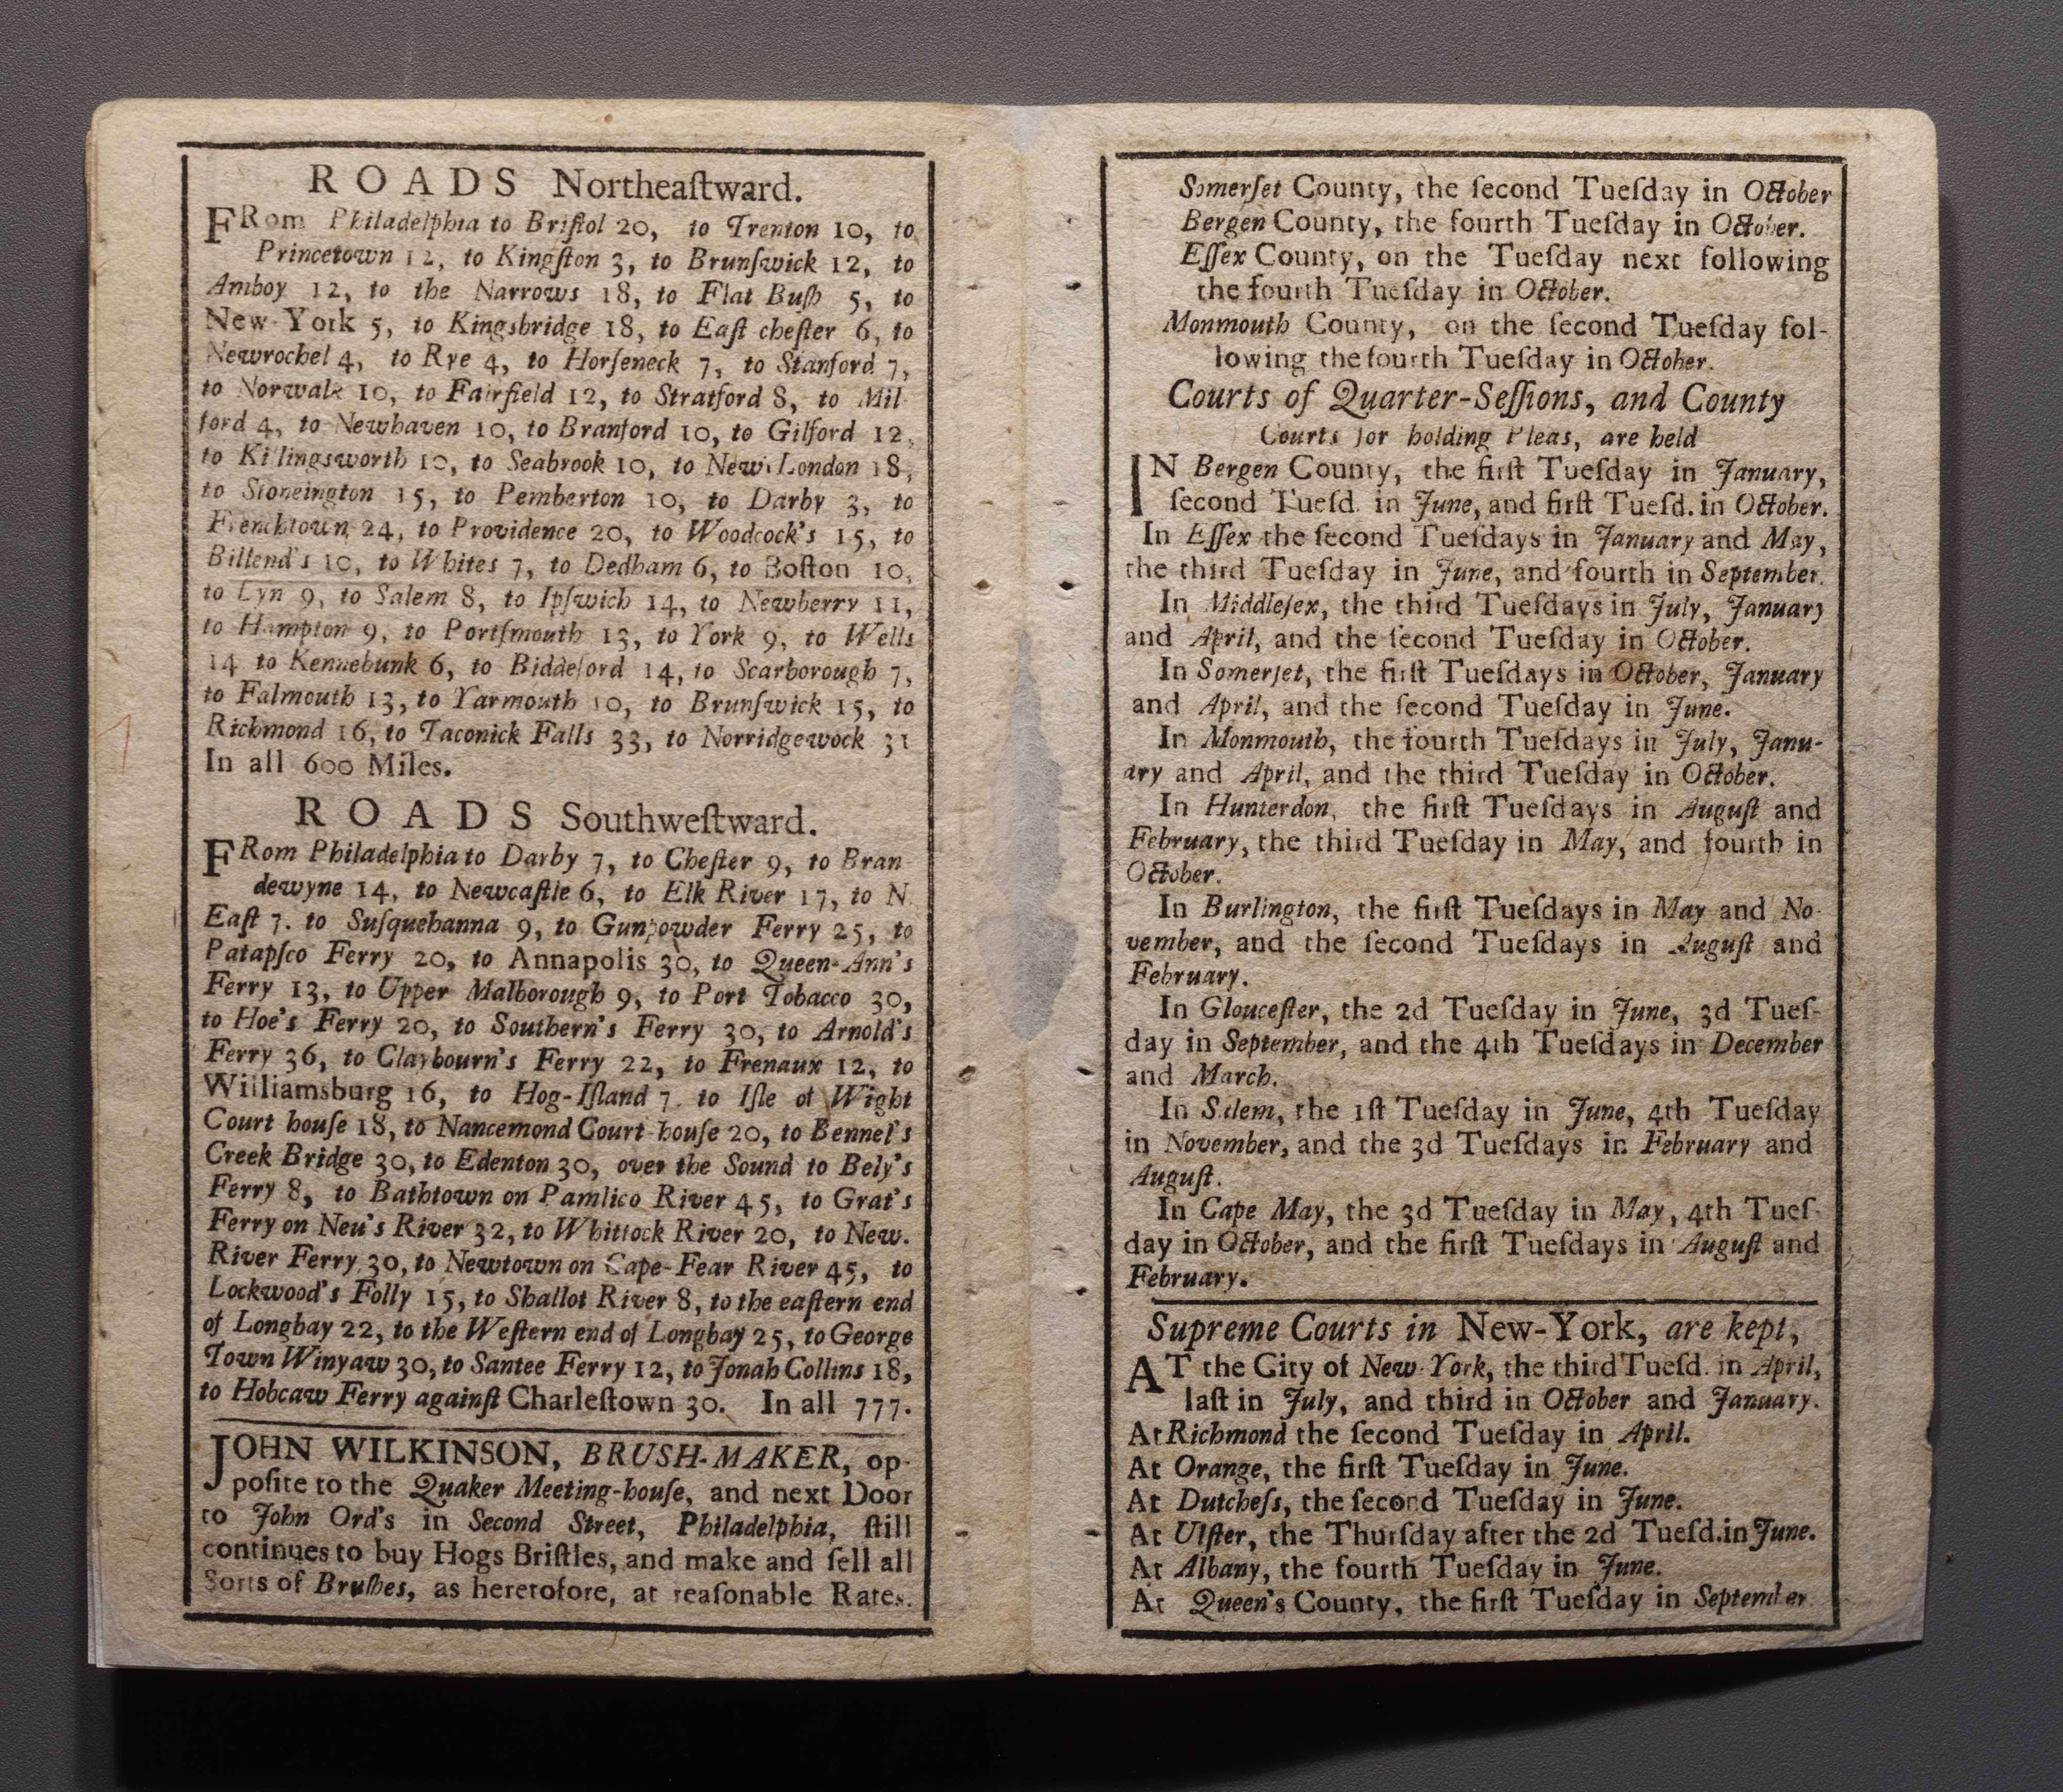 ROADS Northeaſtward.
FRom Philadelphia to Briſtol 20, to Trenton 10, to
Princetown 12, to Kingſton 3, to Brunſwick 12, to
Amboy 12, to the Narrows 18, to Flat Buſh 5, to
New-York 5, to Kingsbridge 18, to Eaſt cheſter 6, to
Newrochel 4, to Rye 4, to Horſeneck 7, to Stanford 7,
to Norwalk 10, to Fairfield 12, to Stratford 8, to Mil
ford 4, to Newhaven 10, to Branford 10, to Gilford 12,
to Killingsworth 10, to Seabrook 10, to New-London 18,
to Stoneington 15, to Pemberton 10, to Darby 3, to
Frenchtown 24, to Providence 20, to Woodcock's 15, to
Billend's 10, to Whites 7, to Dedham 6, to Boſton 10,
to Lyn 9, to Salem 8, to Ipſwich 14, to Newberry 11,
to Hampton 9, to Portſmouth 13, to York 9, to Wells
14 to Kennebunk 6, to Biddeford 14, to Scarborough 7,
to Falmouth 13, to Yarmouth 10, to Brunſwick 15, to
Richmond 16, to Taconick Falls 33, to Norridgewock 31
In all 600 Miles.
ROADS Southweſtward.
FRom Philadelphia to Darby 7, to Cheſter 9, to Bran
dewyne 14, to Newcaſtle 6, to Elk River 17, to N.
Eaſt 7. to Suſquehanna 9, to Gunpowder Ferry 25, to
Patapſco Ferry 20, to Annapolis 30, to Queen-Ann's
Ferry 13, to Upper Malborough 9, to Port Tobacco 30,
to Hoe's Ferry 20, to Southern's Ferry 30, to Arnold's
Ferry 36, to Claybourn's Ferry 22, to Frenaux 12, to
Williamsburg 16, to Hog-Iſland 7. to Iſle of Wight
Court houſe 18, to Nancemond Court-houſe 20, to Bennet's
Creek Bridge 30, to Edenton 30, over the Sound to Bely's
Ferry 8, to Bathtown on Pamlico River 45, to Grat's
Ferry on Neu's River 32, to Whittock River 20, to New.
River Ferry 30, to Newtown on Cape-Fear River 45, to
Lockwood's Folly 15, to Shallot River 8, to the eaſtern end
of Longbay 22, to the Weſtern end of Longbay 25, to George
Town Winyaw 30, to Santee Ferry 12, to Jonah Collins 18,
to Hobcaw Ferry againſt Charleſtown 30. In all 777.
JOHN WILKINSON, BRUSH-MAKER, op-
poſite to the Quaker Meeting-houſe, and next Door
to John Ord's in Second Street, Philadelphia, ſtill
continues to buy Hogs Briſtles, and make and ſell all
Sorts of Bruſhes, as heretofore, at reaſonable Rates.
Somerſet County, the ſecond Tueſday in October
Bergen County, the fourth Tueſday in October.
Eſſex County, on the Tueſday next following
the fourth Tueſday in October.
Monmouth County, on the ſecond Tueſday fol-
lowing the fourth Tueſday in October.
Courts of Quarter-Seſſions, and County
Courts for holding Pleas, are held
IN Bergen County, the firſt Tueſday in January,
ſecond Tueſd. in June, and firſt Tueſd. in October.
In Eſſex the ſecond Tueſdays in January and May,
the third Tueſday in June, and fourth in September.
In Middleſex, the third Tueſdays in July, January
and April, and the ſecond Tueſday in October.
In Somerſet, the firſt Tueſdays in October, January
and April, and the ſecond Tueſday in June.
In Monmouth, the fourth Tueſdays in July, Janu-
ary and April, and the third Tueſday in October.
In Hunterdon, the firſt Tueſdays in Auguſt and
February, the third Tueſday in May, and fourth in
October.
In Burlington, the firſt Tueſdays in May and No-
vember, and the ſecond Tueſdays in Auguſt and
February.
In Glouceſter, the 2d Tueſday in June, 3d Tueſ-
day in September, and the 4th Tueſdays in December
and March.
In Salem, the 1ſt Tueſday in June, 4th Tueſday
in November, and the 3d Tueſdays in February and
Auguſt.
In Cape May, the 3d Tueſday in May, 4th Tueſ-
day in October, and the firſt Tueſdays in Auguſt and
February.
Supreme Courts in New-York, are kept,
AT the City of New-York, the third Tueſd. in April,
laſt in July, and third in October and January.
At Richmond the ſecond Tueſday in April.
At Orange, the firſt Tueſday in June.
At Dutcheſs, the ſecond Tueſday in June.
At Ulſter, the Thurſday after the 2d Tueſd.in June.
At Albany, the fourth Tueſday in June.
At Queen's County, the firſt Tueſday in September